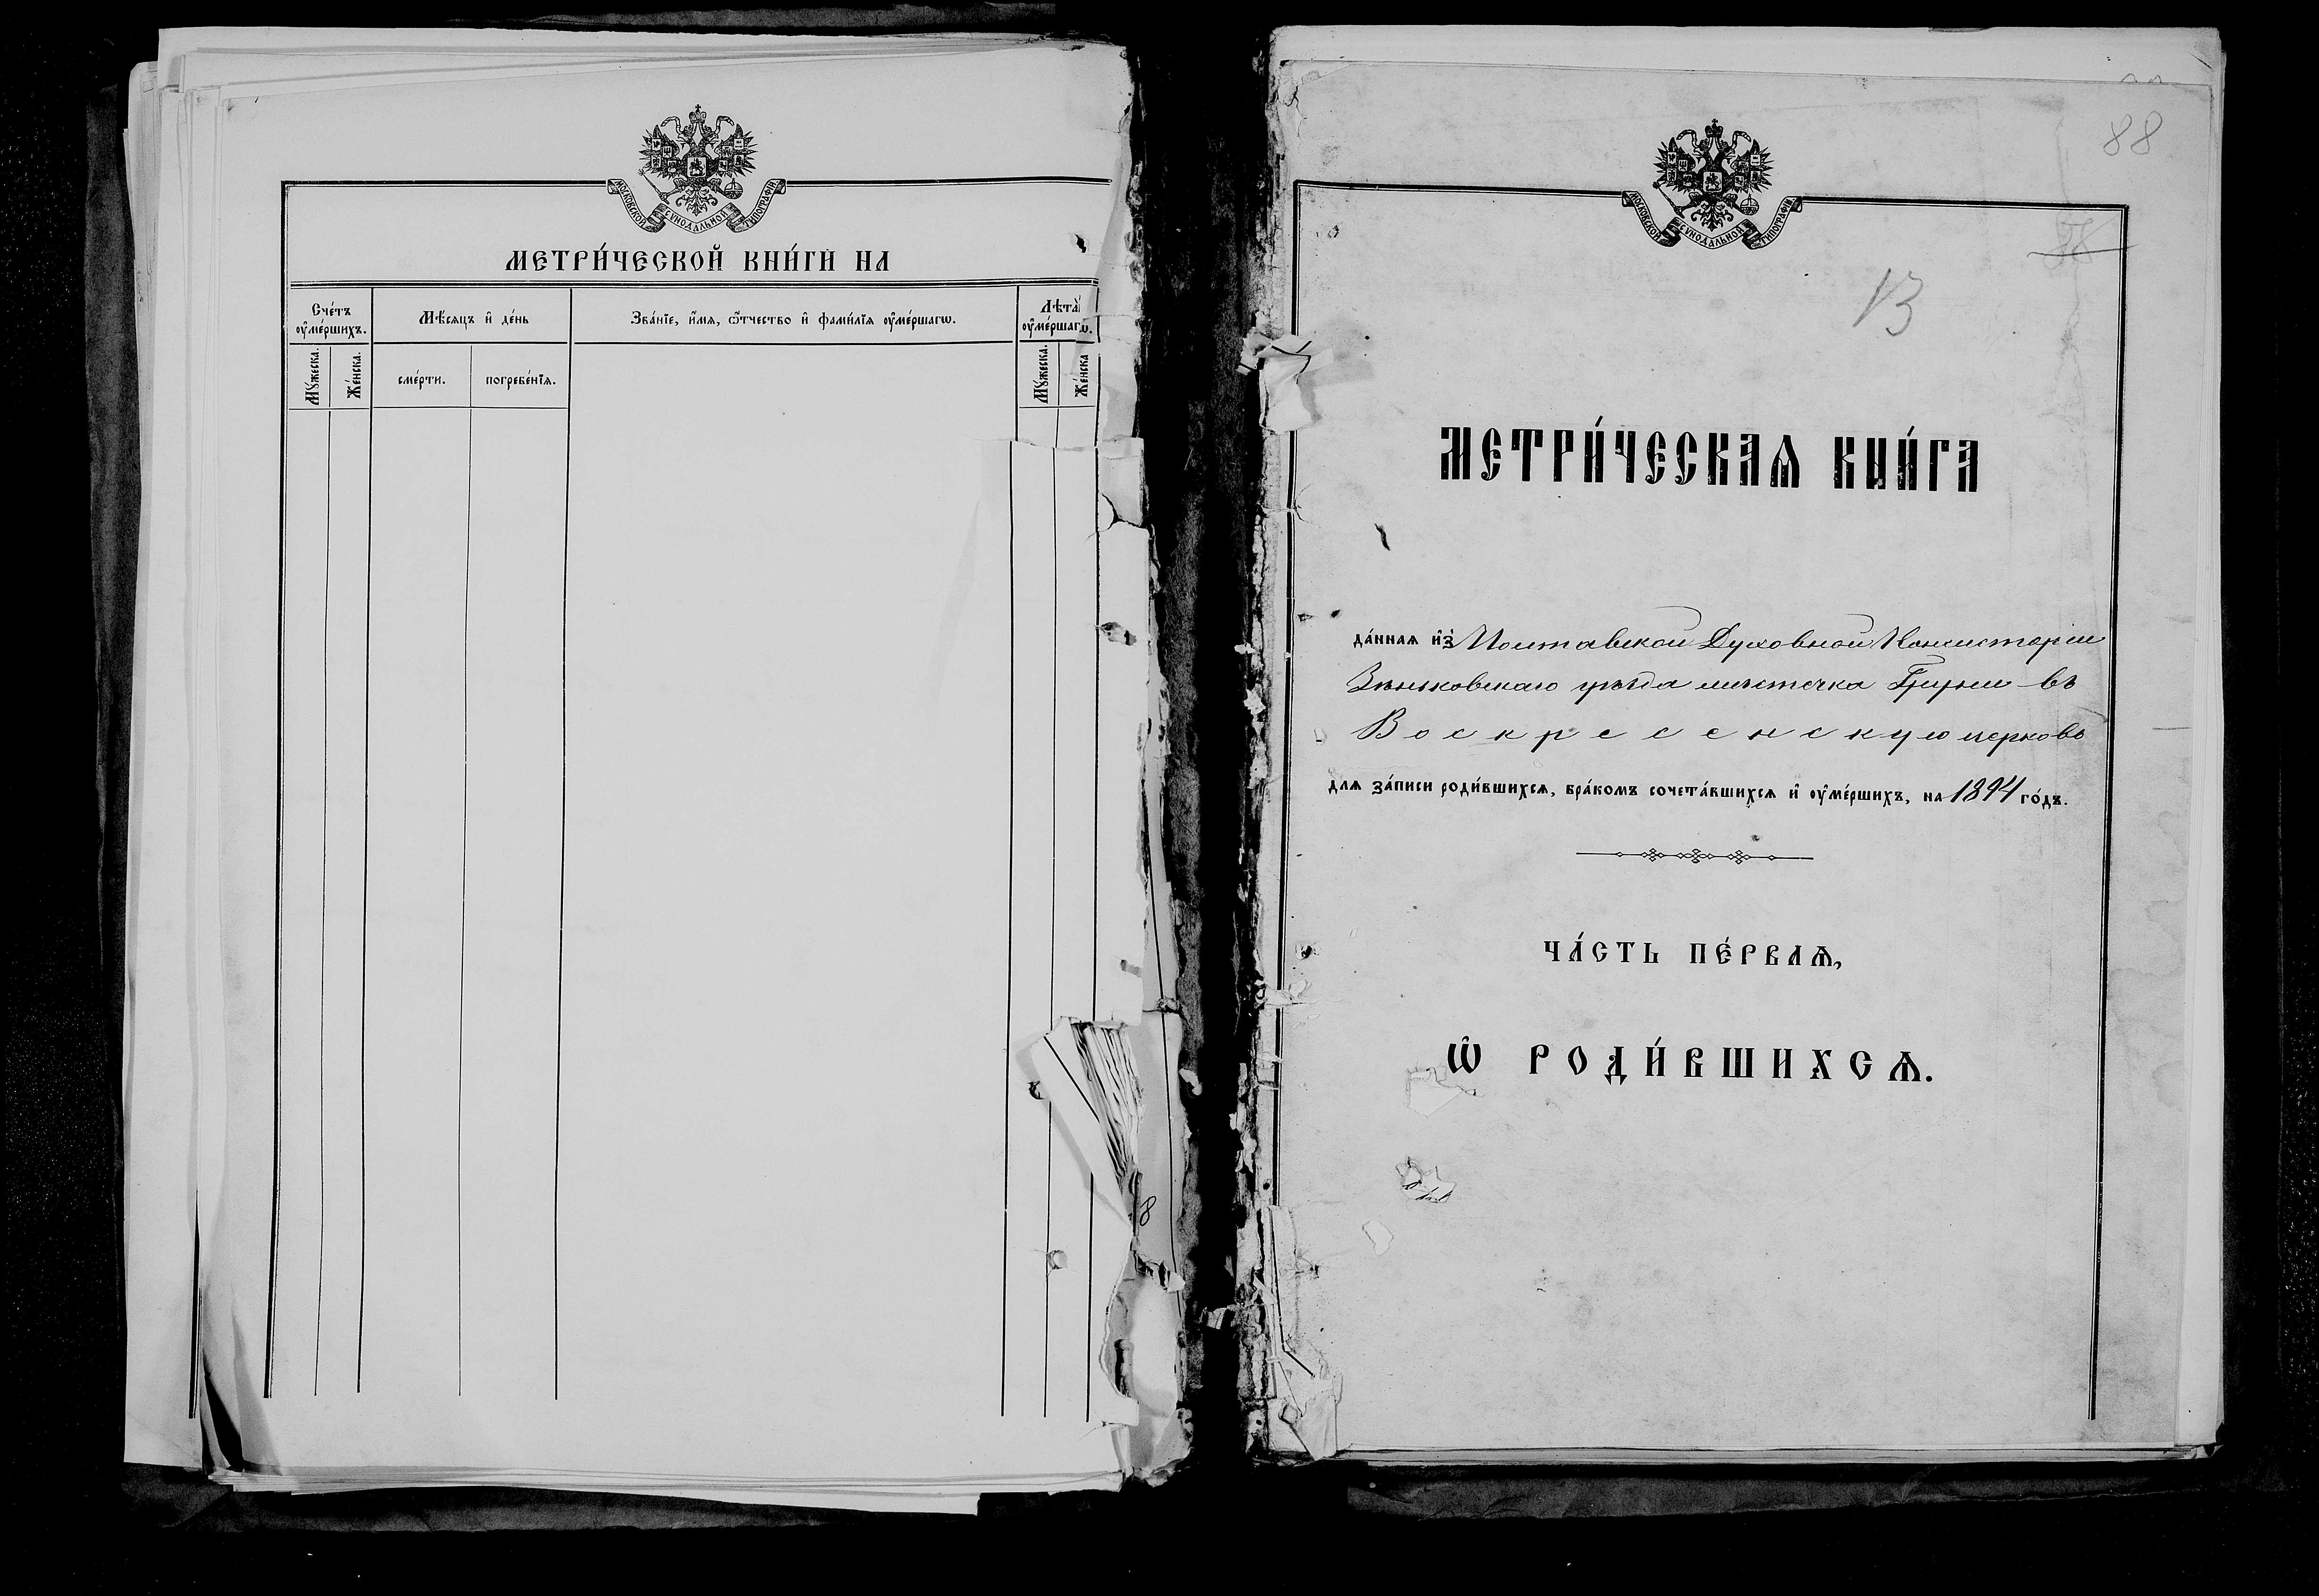 МОСКОВСКОЙ СѴНОДАЛЬНОЙ ТИПОГРАФІИ
МЕТРИ́ЧЕСКОЙ КНИ́ГИ НА
Сче́тъ ᲂу҆ме́ршихъ.
Мѣ́сяцъ и҆ де́нь
Зва́нїе, и҆́мѧ, ѻ҆́тчество и҆ фами́лїѧ ᲂу҆ме́ршагѡ.
Лѣта̀ ᲂу҆ме́ршагѡ.
Мꙋ́жеска.
Же́нска.
сме́рти.
погребе́нїѧ.
Мꙋ́жеска.
Же́нска
8
88
МОСКОВСКОЙ СѴНОДАЛЬНОЙ ТИПОГРАФІИ
88
13
МЕТРИ́ЧЕСКАѦ КНИ́ГА
да́ннаѧ и҆з̾ Полтавской Духовной Консисторіи
Зѣньковскаго уѣзда мѣстечка Груни въ
Воскресенскую церковь
для за́писи роди́вшихсѧ, бра́комъ сочета́вшихсѧ и҆ ᲂу҆ме́ршихъ, на 1894 го́дъ.
ЧА́СТЬ ПЕ́РВАѦ,
Ѡ҆ РОДИ́ВШИХСѦ.